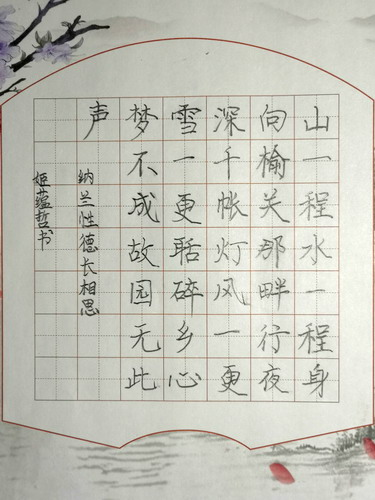 山一程水一程身
向榆关那畔行夜
深千帐灯风一更
雪一更聒碎乡心
梦不成故园无此
声
纳兰性德长相思
姬蕴哲书